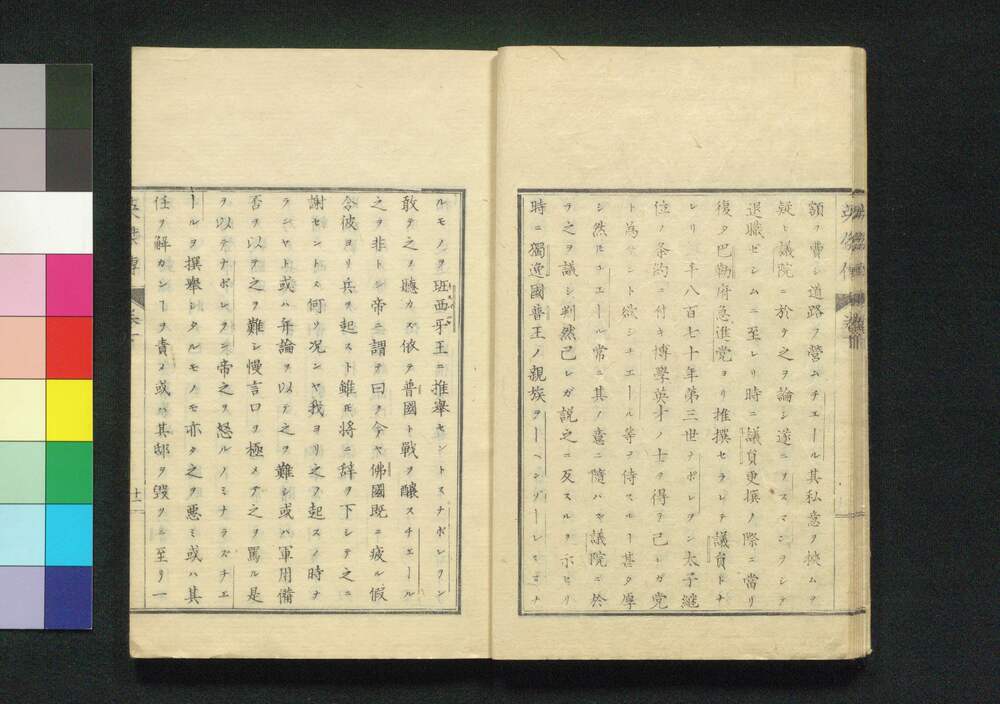 額ヲ費シ道路ヲ營ムチエール其私意ヲ挾ムヲ
疑ヒ議院ニ於テ之ヲ論シ遂ニヲスマンヲシテ
退職セシムニ至レリ時ニ議貟更撰ノ際ニ當リ
復タ巴勒府急進党ヨリ推撰セラレテ議貟トナ
レリ一千八百七十年第三世ナポレヲン太子継
位ノ条約ニ付キ博學英才ノ士ヲ得テ己レガ党
ト為サント欲シチエール等ヲ侍スルモ甚タ厚
シ然ルニチエール常ニ其ノ意ニ隨ハズ議院ニ於
ヲ之ヲ議シ判然己レガ説之ニ反スルヲ示セリ
時ニ獨逸國普王ノ親族ヲーヘンゾーレスヒナ
ルモノヲ班西牙王ニ推舉セントスナポレヲン
敢テ之ヲ聴カズ依テ普國ト戰ヲ釀スチエール
之ヲ非トシ帝ニ謂ヲ曰ク今ヤ佛國既ニ疲ル假
令彼ヨリ兵ヲ起スト雖モ將ニ辞ヲ下シテ之ニ
謝セントス何ソ况ンヤ我ヨリ之ヲ起スノ時ナ
ランヤト或ハ弁論ヲ以テ之ヲ難シ或ハ軍用備
否ヲ以テ之ヲ難シ慢言口ヲ極メテ之ヲ罵ル是
ヲ以テナポレヲン帝之ヲ怒ルノミナラズチエ
ールヲ撰舉シタルモノモ亦タ之ヲ悪ミ或ハ其
任ヲ解カンヿヲ責メ或ハ其邸ヲ毀ツニ至リ一
十一